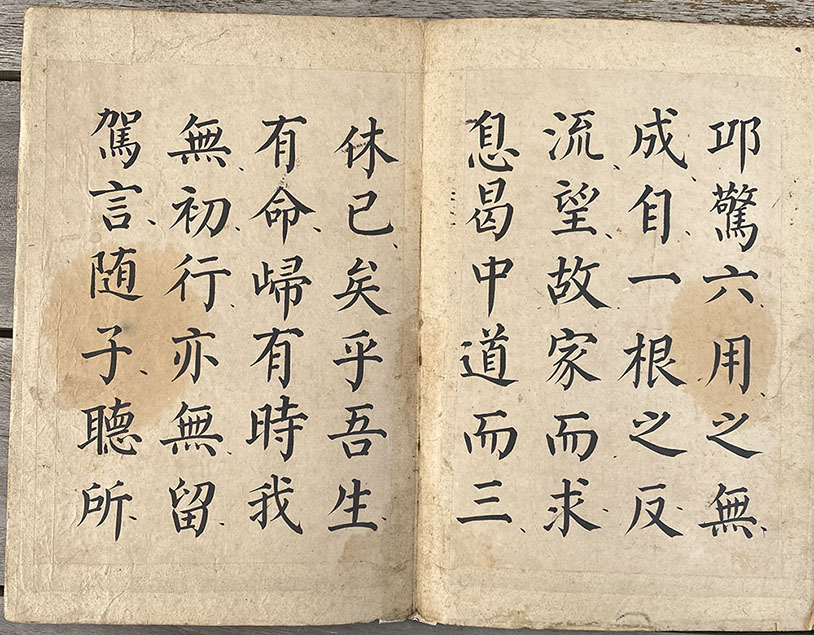 卭驚六用之無
成自一根之反
流望故家而求
息曷中道而三
休已矣乎吾生
有命㱕有時我
無初行亦無留
駕言随子聽所